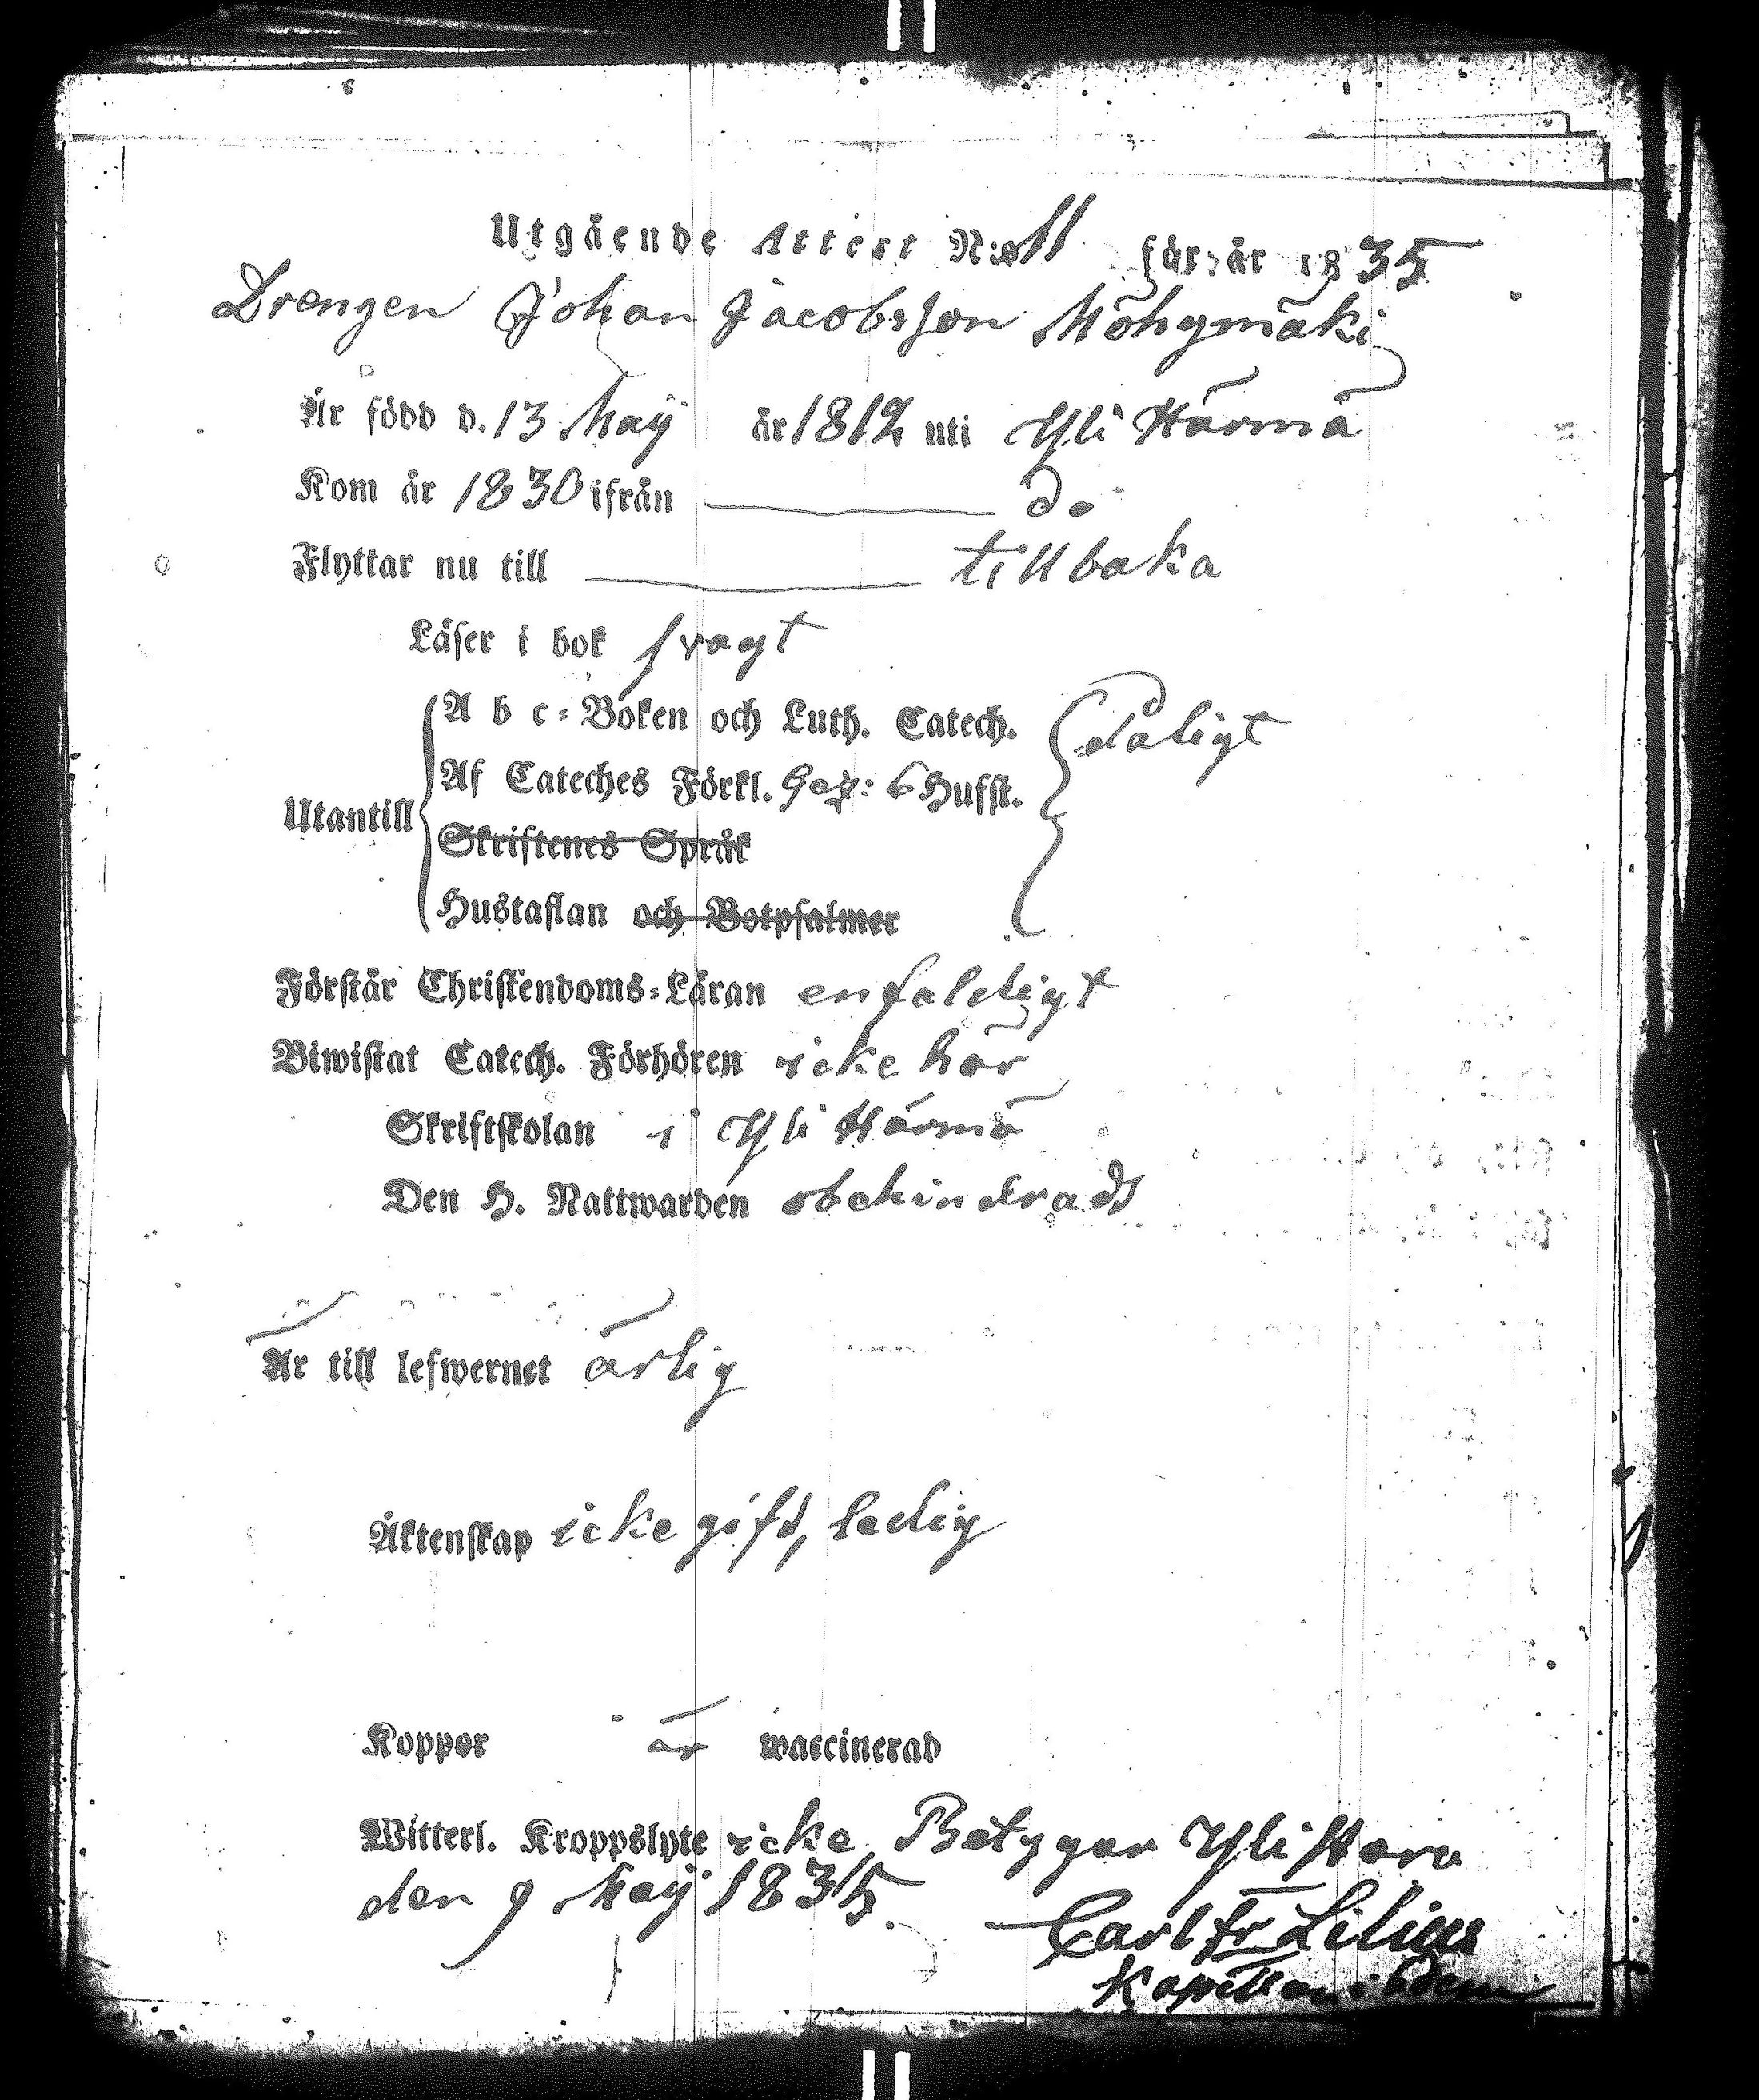 Utgående Attest N:o 11 för år 1835
Drengen Johan Jacobsson Möhymäki
Är född d. 13 Maij år 1812 uti Yli Härmä
Kom år 1830 ifrån do
Flyttar nu till tillbaka
Läser i bok svagt
A b c-Boken och Luth. Catech. dåligt
Af Cateches Förkl. 6 Hufst.
Utantill
Skriftenes Språk
Hustaflan och Botpsalmer
Förstår Christendoms-Läran enfaldigt
Biwistat Catech. Förhören icke här
Skriftskolan i Yli Härmä
Den H. Nattwarden obehindradt
Är till lefwernet ärlig
Äktenskap icke gift, ledig
Koppor är waccinerad
Witterl. Kroppslyte icke, Betygar Ylistaro
den 9 Maij 1835.
Carl Fr Lilius
Kapellan ibdem